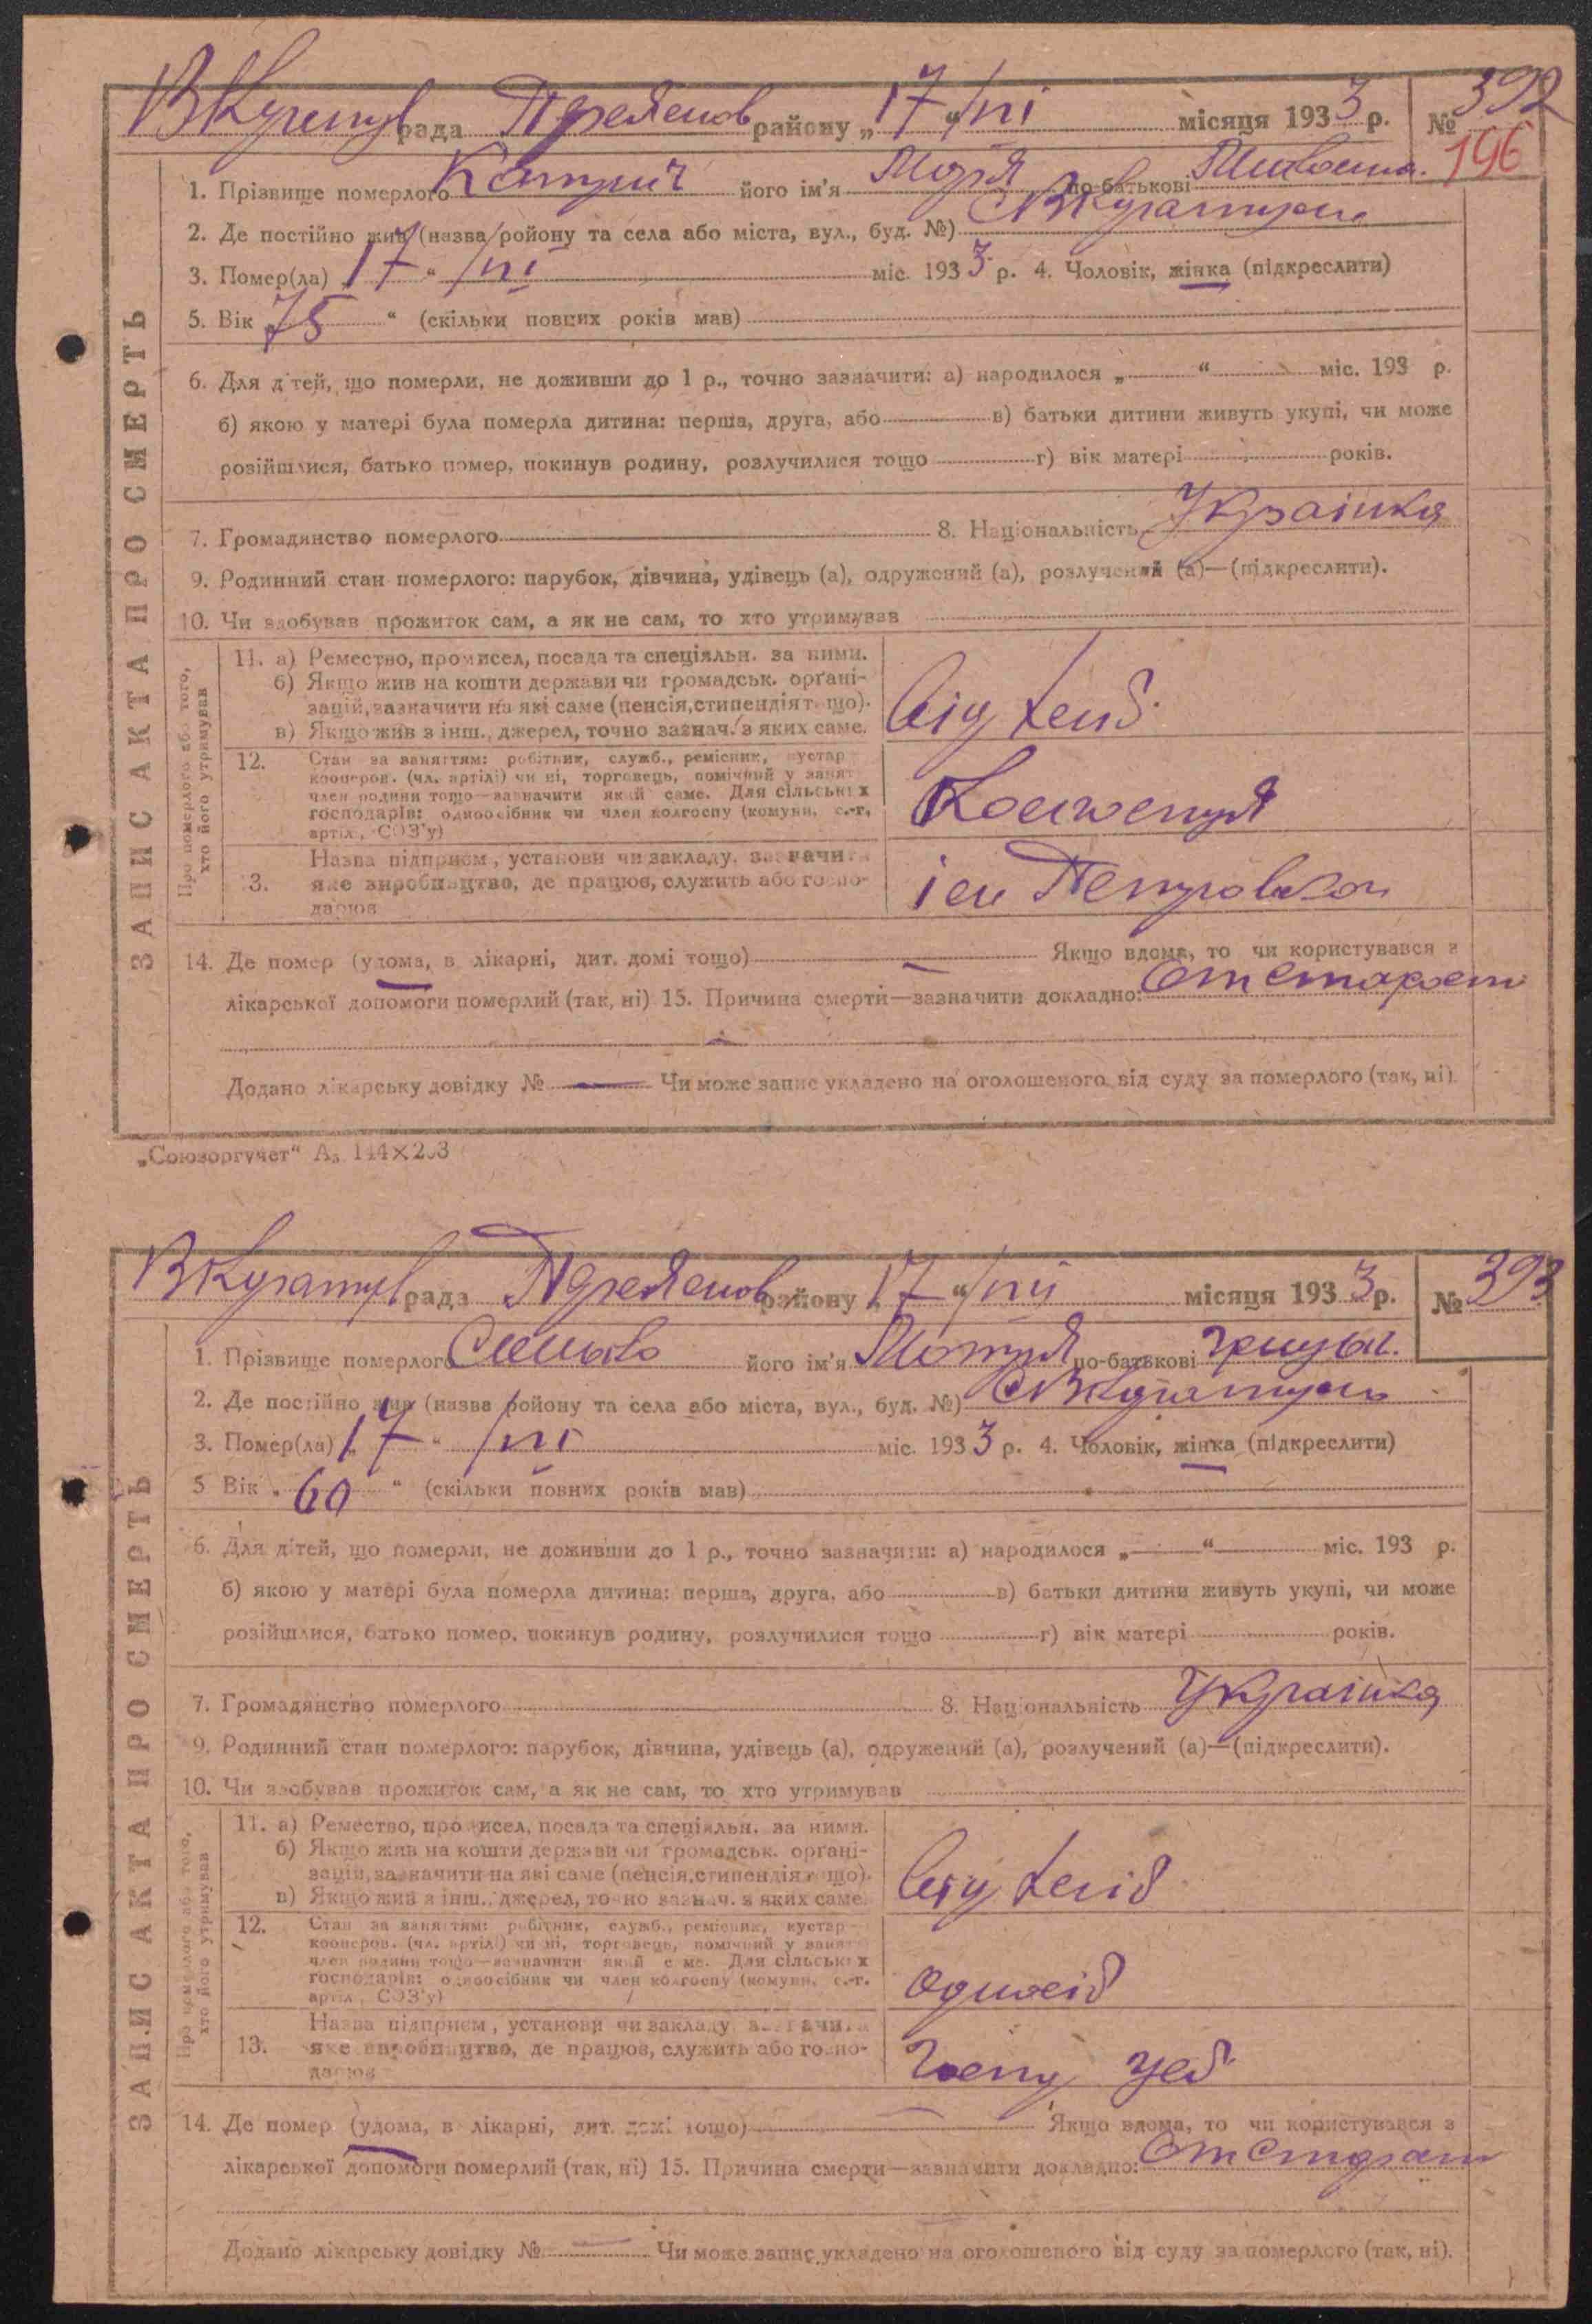 рада району „17“ /VІ місяця 1933 р. № 392
196
1. Прізвище померлого його ім'я Марія по-батькові
2. Де постійно жив (назва ройону та села або міста, вул., буд. №)
3. Помер(ла) „17“ /VІ міс. 1933 р. 4. Чоловік, жінка (підкреслити)
5. Вік „75“ (скільки повних років мав)
6. Для дітей, що померли, не доживши до 1 р., точно зазначити: а) народилося „ “ міс. 193 р.
б) якою у матері була померла дитина: перша, друга, або в) батьки дитини живуть укупі, чи може
розійшлися, батько помер, покинув родину, розлучилися тощо г) вік матері років.
7. Громадянство померлого 8. Національність Українка
9. Родинний стан померлого: парубок, дівчина, удівець (а), одружений (а), розлучений (а)—(підкреслити).
10. Чи здобував прожиток сам, а як не сам, то хто утримував
ЗАПИС АКТА ПРО СМЕРТЬ
Про померлого або того,
хто його утримував
11. а) Ремество, промисел, посада та спеціяльн. за ними.
б) Якщо жив на кошти держави чи громадськ. орґані-
зацій, зазначити на які саме (пенсія, стипендія тощо).
в) Якщо жив з інш., джерел, точно зазнач. з яких саме.
12. Стан за заняттям: робітник, служб., ремісник, кустар
кооперов. (чл. артілі) чи ні, торговець, помічний у занят.
член родини тощо—зазначити який саме. Для сільських
господарів: одноосібник чи член колгоспу (комуни, с.-г.
артіл., СОЗ'у)
Назва підприєм., установи чи закладу, зазначити
13. яке виробництво, де працює, служить або госпо-
дарює
ім Петровского
14. Де помер (удома, в лікарні, дит. домі тощо) Якщо вдома, то чи користувався з
лікарської допомоги померлий (так, ні) 15. Причина смерти—зазначити докладно: От старости
Додано лікарську довідку № — Чи може запис укладено на оголошеного від суду за померлого (так, ні)
„Союзоргучет“ А₅ 144×203
рада району „17“ /VІІ місяця 1933 р. № 393
1. Прізвище померлого його ім'я Мотря по-батькові
2. Де постійно жив (назва ройону та села або міста, вул., буд. №)
3. Помер(ла) „17“ /VІ міс. 1933 р. 4. Чоловік, жінка (підкреслити)
5 Вік „60“ (скільки повних років мав)
6. Для дітей, що померли, не доживши до 1 р., точно зазначити: а) народилося „ “ міс. 193 р.
б) якою у матері була померла дитина: перша, друга, або в) батьки дитини живуть укупі, чи може
розійшлися, батько помер, покинув родину, розлучилися тощо г) вік матері років.
7. Громадянство померлого 8. Національність Українка
9. Родинний стан померлого: парубок, дівчина, удівець (а), одружений (а), розлучений (а)—(підкреслити).
10. Чи здобував прожиток сам, а як не сам, то хто утримував
ЗАПИС АКТА ПРО СМЕРТЬ
Про померлого або того,
хто його утримував
11. а) Ремество, промисел, посада та спеціяльн. за ними.
б) Якщо жив на кошти держави чи громадськ. орґані-
зацій, зазначити на які саме (пенсія, стипендія тощо).
в) Якщо жив з інш., джерел, точно зазнач. з яких саме.
12. Стан за заняттям: робітник, служб., ремісник, кустар
кооперов. (чл. артілі) чи ні, торговець, помічний у занят.
член родини тощо—зазначити який саме. Для сільських
господарів: одноосібник чи член колгоспу (комуни, с.-г.
артіл., СОЗ'у)
Одноосіб
Назва підприєм., установи чи закладу, зазначити
13. яке виробництво, де працює, служить або госпо-
дарює
14. Де помер (удома, в лікарні, дит. домі тощо) Якщо вдома, то чи користувався з
лікарської допомоги померлий (так, ні) 15. Причина смерти—зазначити докладно:
Додано лікарську довідку № — Чи може запис укладено на оголошеного від суду за померлого (так, ні).